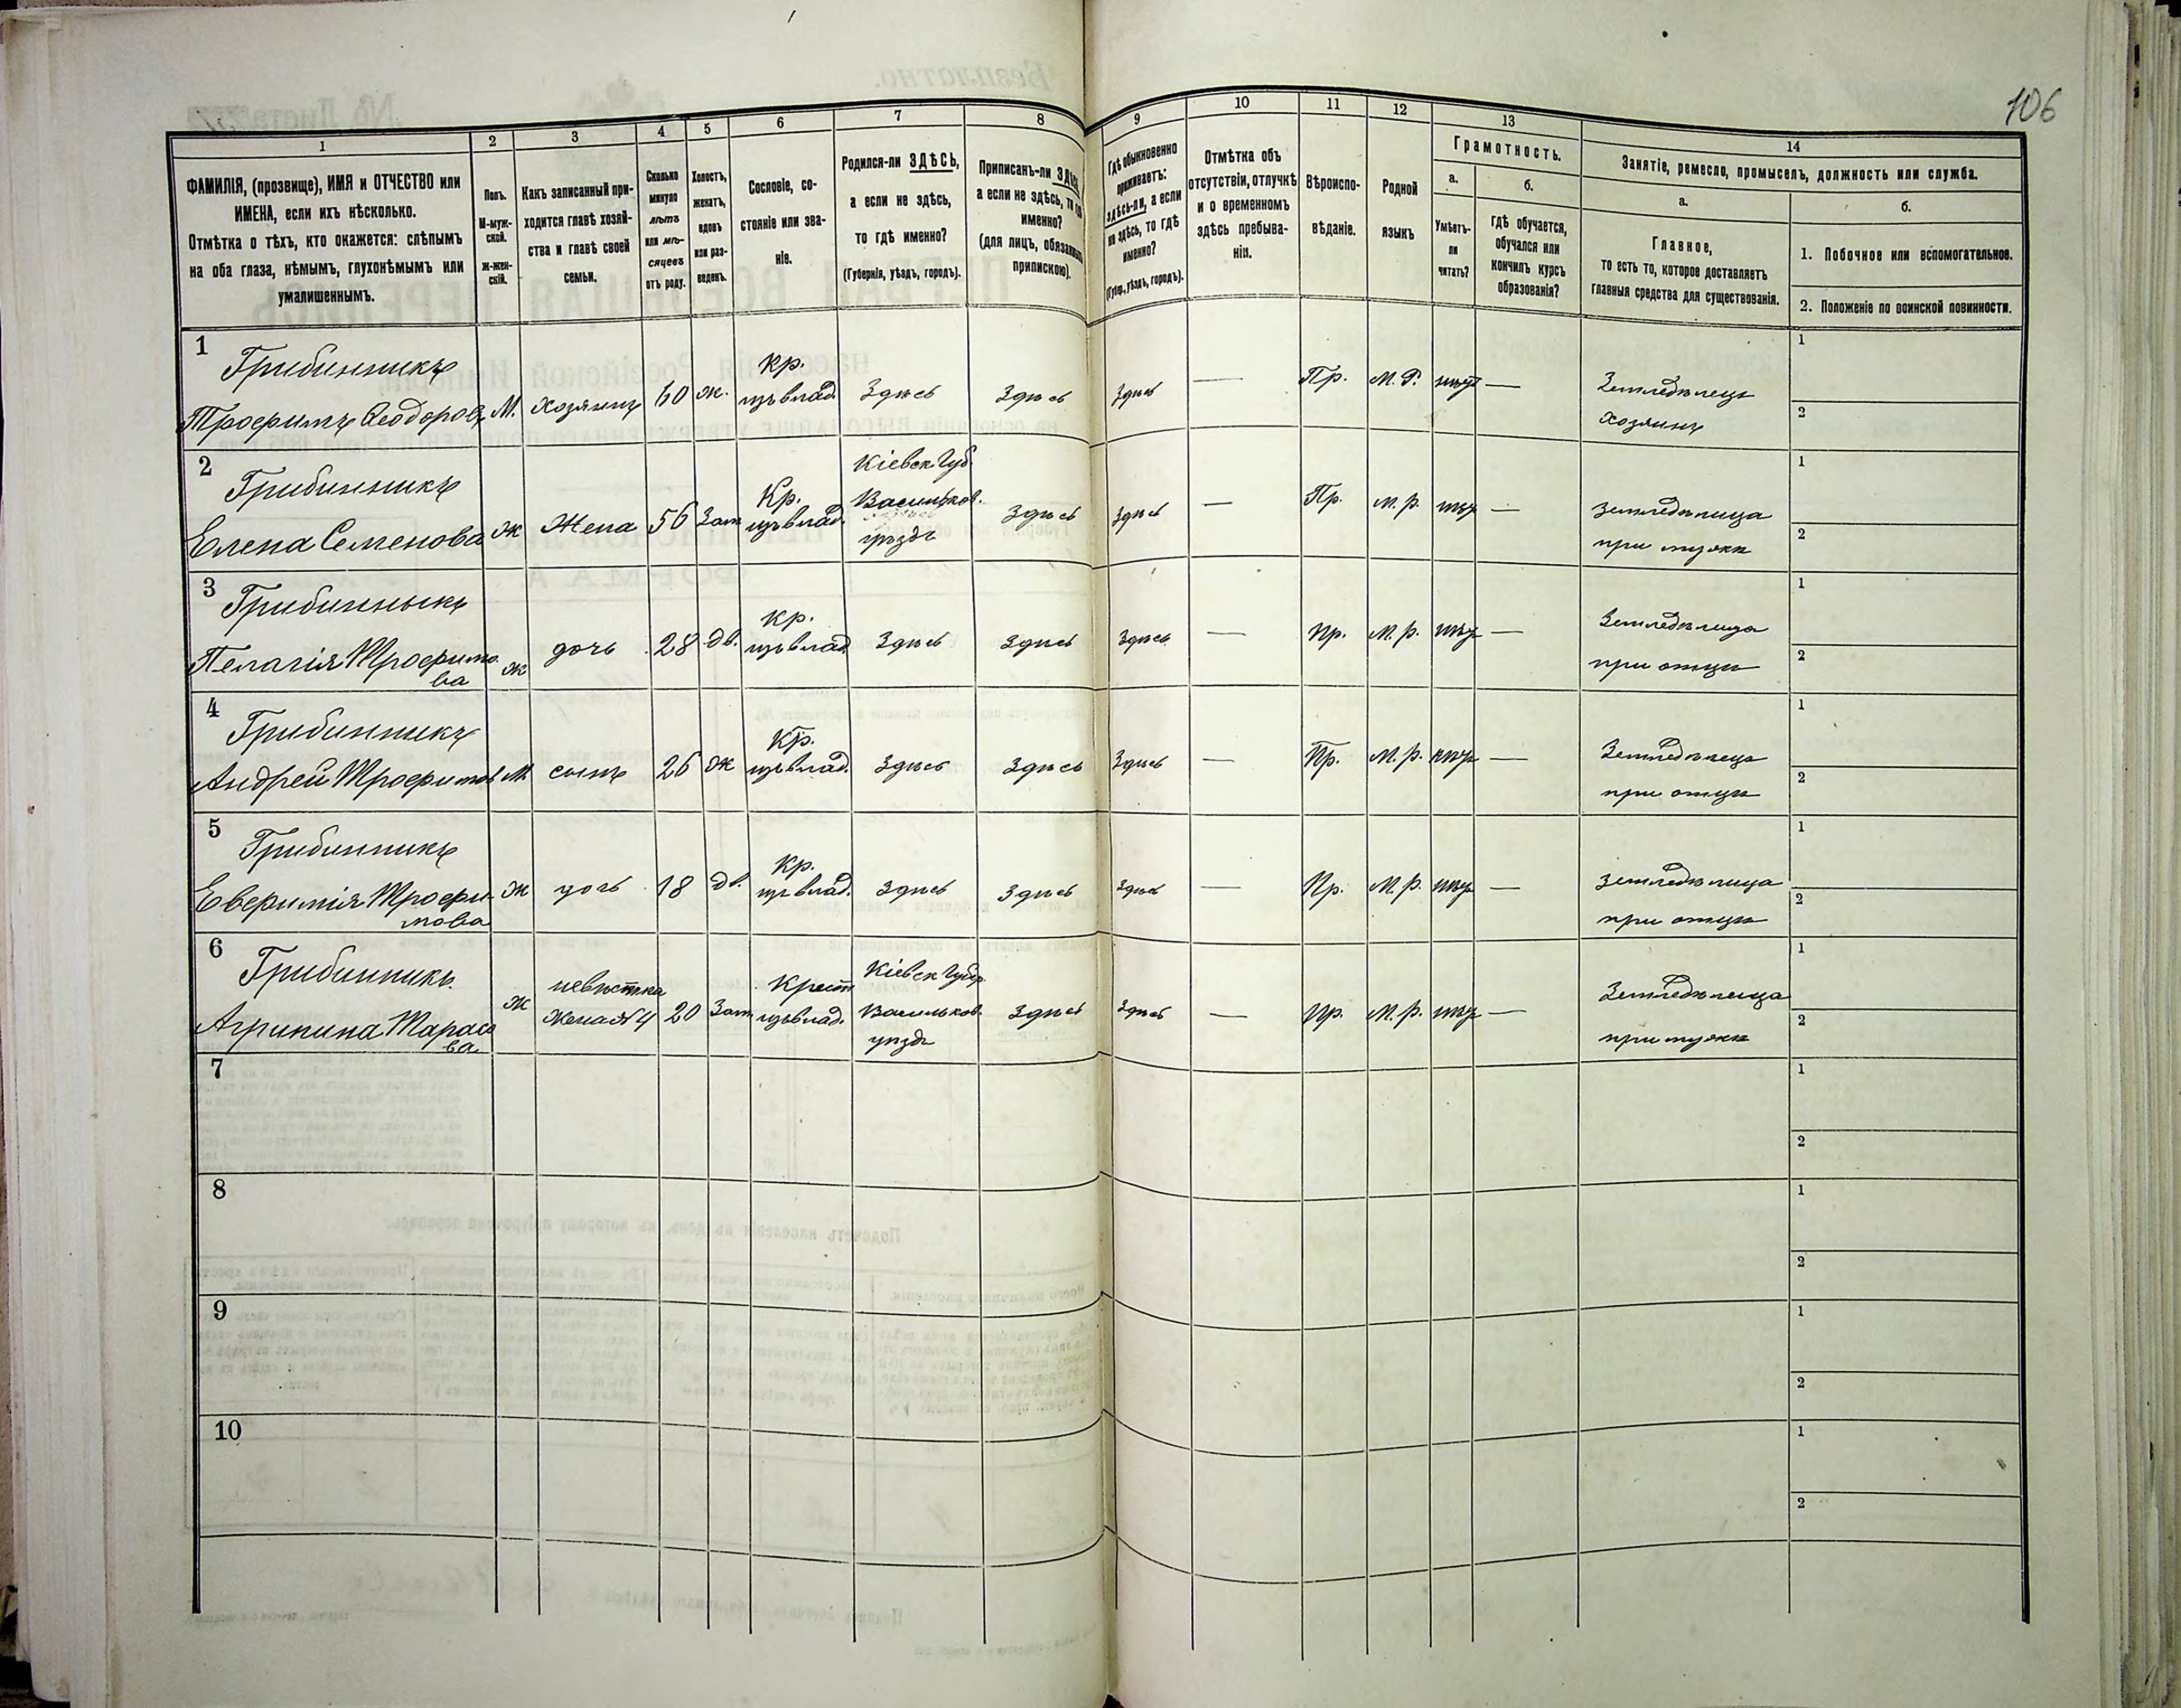 106
1 2 3 4 5 6 7 8 9 10 11 12 13 14
ФАМИЛІЯ, (прозвище), ИМЯ и ОТЧЕСТВО или
ИМЕНА, если ихъ нѣсколько.
Отмѣтка о тѣхъ, кто окажется: слѣпымъ
на оба глаза, нѣмымъ, глухонѣмымъ или
умалишеннымъ.
Полъ.
М-муж-
ской.
Ж-жен-
скій.
Какъ записанный при-
ходится главѣ хозяй-
ства и главѣ своей
семьи.
Сколько
минуло
лѣтъ
или мѣ-
сяцевъ
отъ роду.
Холостъ,
женатъ,
вдовъ
или раз-
веденъ.
Сословіе, со-
стояніе или зва-
ніе.
Родился-ли ЗДѢСЬ,
а если не здѣсь,
то гдѣ именно?
(Губернія, уѣздъ, городъ).
Приписанъ-ли ЗДѢСЬ,
а если не здѣсь, то гдѣ
именно?
(для лицъ, обязанныхъ
припискою).
Гдѣ обыкновенно
проживаетъ:
здѣсь-ли, а если
не здѣсь, то гдѣ
именно?
(Губер., уѣздъ, городъ).
Отмѣтка объ
отсутствіи, отлучкѣ
и о временномъ
здѣсь пребыва-
ніи.
Вѣроиспо-
вѣданіе.
Родной
языкъ
Грамотность.
а.
Умѣетъ-
ли
читать?
б.
гдѣ обучается,
обучался или
кончилъ курсъ
образованія?
Занятіе, ремесло, промыселъ, должность или служба.
а.
Главное,
то есть то, которое доставляетъ
главныя средства для существованія.
б.
1. Побочное или вспомогательное.
2. Положеніе по воинской повинности.
1
Грибинникъ
Трофимъ Ѳеодоровъ М. хозяинъ 60 ж. Кр. изъ влад. Здѣсь Здѣсь Здѣсь — Пр. М. Р. нѣтъ — Земледѣлецъ
хозяинъ
1
2
2
Грибинникъ
Елена Семенова Ж Жена 56 Зам. Кр. изъ влад. Кіевск. Губ. Васильков. уѣздъ Здѣсь Здѣсь — Пр. М. р. нѣтъ — Земледѣлица
при мужѣ
1
2
3
Грибинныкъ
Пелагія Трофимо
ва ж дочь 28 дв. Кр. изъ влад. Здѣсь Здѣсь Здѣсь — Пр. М. р. нѣтъ — Земледѣлица
при отцѣ
1
2
4
Грибинникъ
Андрей Трофимов М. сынъ 26 ж Кр. изъ влад. Здѣсь Здѣсь Здѣсь — Пр. М. р. нѣтъ — Земледѣлецъ
при отцѣ
1
2
5
Грибинникъ
Евфимія Трофи-
мова Ж дочь 18 дв. Кр. изъ влад. Здѣсь Здѣсь Здѣсь — Пр. М. р. нѣтъ — Земледѣлица
при отцѣ
1
2
6
Грибинникъ
Агрипина Тарасо
ва ж невѣстка Жена №4 20 Зам. Крест изъ влад. Кіевск Губер. Васильков. уѣздъ Здѣсь Здѣсь — Пр. М. р. нѣтъ — Земледѣлица
при мужѣ
1
2
7
1
2
8
1
2
9
1
2
10
1
2